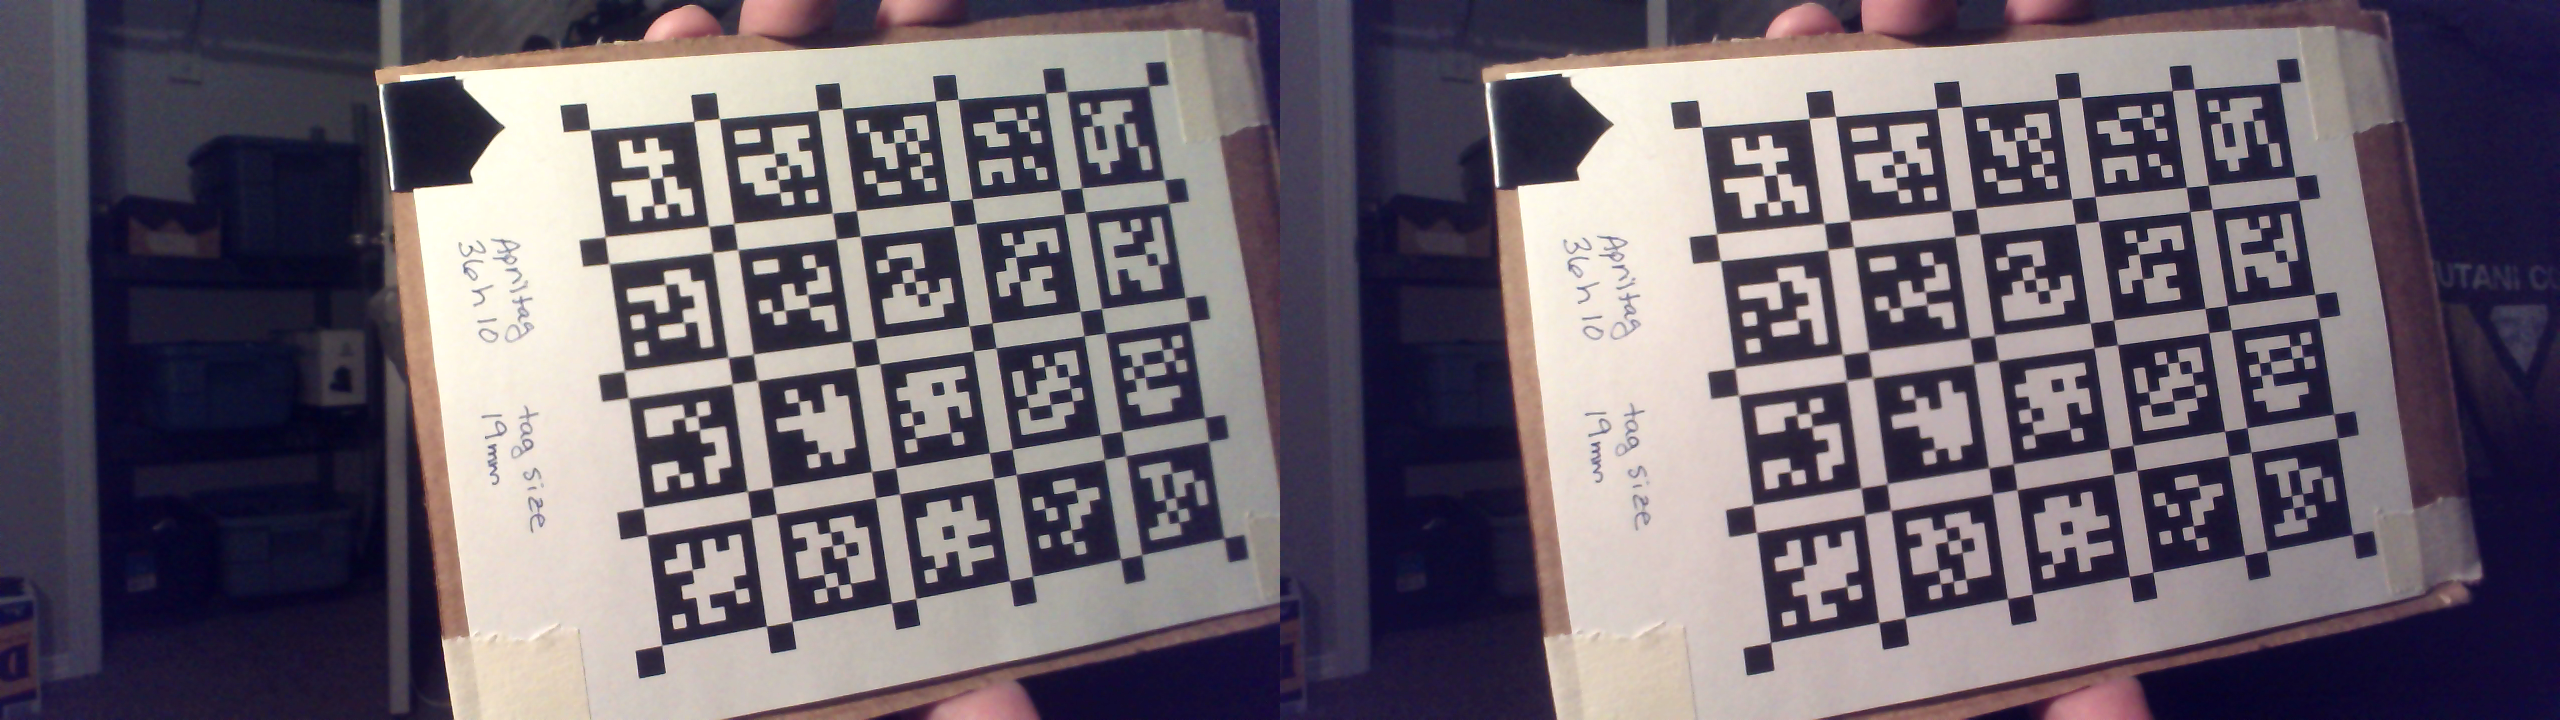 Apriltag
36h10
tag size
19mm
Apriltag
36h10
tag size
19mm
UTANI CO